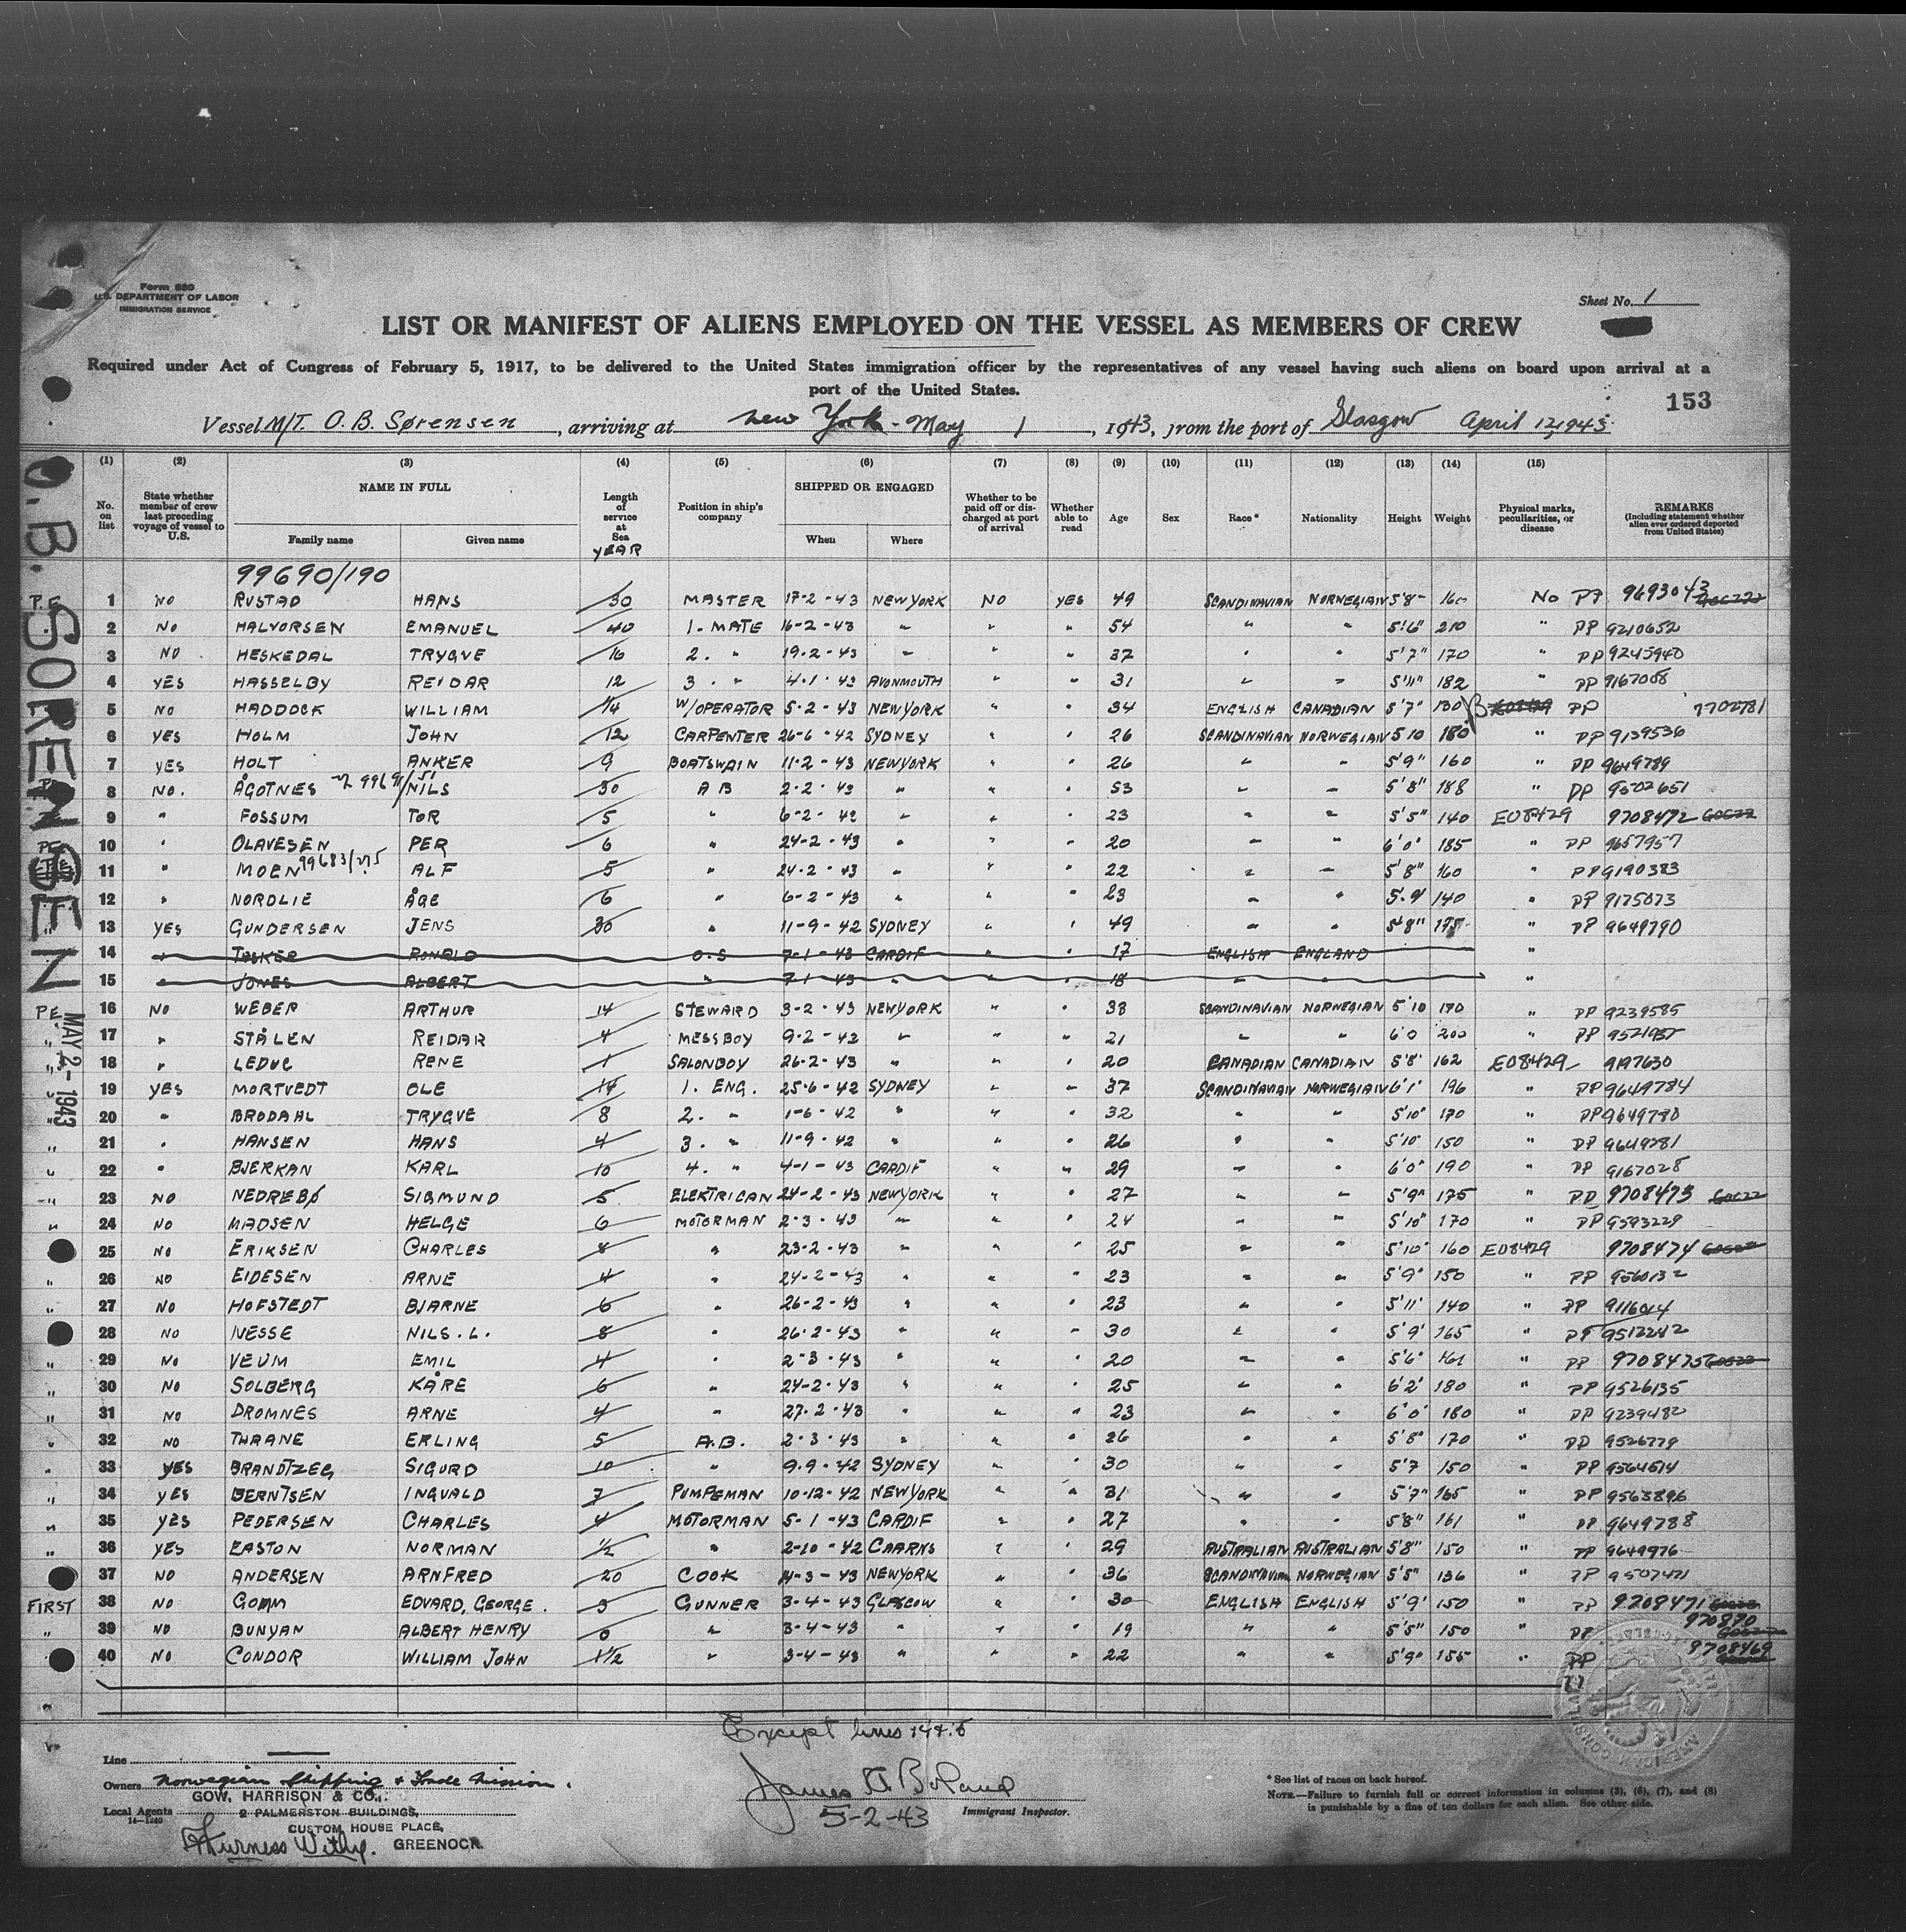 Form 680
U.S. DEPARTMENT OF LABOR
IMMIGRATION SERVICE
Sheet No. 1
LIST OR MANIFEST OF ALIENS EMPLOYED ON THE VESSEL AS MEMBERS OF CREW
Required under Act of Congress of February 5, 1917, to be delivered to the United States immigration officer by the representatives of any vessel having such aliens on board upon arrival at a
port of the United States.
153
Vessel M/T. O.B. Sørensen, arriving at New York - May 1, 1943, from the port of Glasgow April 12, 1943
O.B. SORENSEN
MAY 2 - 1943
(1) (2) (3) (4) (5) (6) (7) (8) (9) (10) (11) (12) (13) (14) (15)
No. on list State whether member of crew last preceding voyage of vessel to U.S. NAME IN FULL Family name Given name Length of service at Sea YEAR Position in ship's company SHIPPED OR ENGAGED When Where Whether to be paid off or discharged at port of arrival Whether able to read Age Sex Race* Nationality Height Weight Physical marks, peculiarities, or disease REMARKS (Including statement whether alien ever ordered deported from United States)
99690/190
P.E. 1 NO RUSTAD HANS 30 MASTER 17-2-43 NEW YORK NO YES 49 SCANDINAVIAN NORWEGIAN 5'8" 160 No PP 9693043
2 NO HALVORSEN EMANUEL 40 1. MATE 16-2-43 " " " 54 " " 5'6" 210 " PP 9210652
3 NO HESKEDAL TRYGVE 16 2. " 19-2-43 " " " 37 " " 5'7" 170 " PP 9245940
4 YES HASSELBY REIDAR 12 3. " 4-1-43 AVONMOUTH " " 31 " " 5'11" 182 " PP 9167058
5 NO HADDOCK WILLIAM 1/4 W/OPERATOR 5-2-43 NEW YORK " " 34 ENGLISH CANADIAN 5'7" 130 PP 7702781
6 YES HOLM JOHN 12 CARPENTER 26-6-42 SYDNEY " " 26 SCANDINAVIAN NORWEGIAN 5'10 180 " PP 9139536
7 YES HOLT ANKER 9 BOATSWAIN 11-2-43 NEW YORK " " 26 " " 5'9" 160 " PP 9649789
8 NO. ÅGOTNES 99691/51 NILS 30 A B 2-2-43 " " " 53 " " 5'8" 188 " PP 9502651
9 " FOSSUM TOR 5 " 6-2-42 " " " 23 " " 5'5" 140 E08429 9708472
PE 10 " OLAVESEN PER 6 " 24-2-43 " " " 20 " " 6'0" 185 " PP 9657957
11 " MOEN 99683/275 ALF 5 " 24-2-43 " " " 22 " " 5'8" 160 " PP 9190383
12 " NORDLIE ÅGE 6 " 6-2-43 " " " 23 " " 5.9' 140 " PP 9175073
13 YES GUNDERSEN JENS 30 " 11-9-42 SYDNEY " " 49 " " 5'8" 175 " PP 9649790
14 " TUSKER RONALD O.S 7-1-43 CARDIF " " 17 ENGLISH ENGLAND "
15 " JONES ALBERT " 7-1-43 " 18 " " "
PE 16 NO WEBER ARTHUR 14 STEWARD 3-2-43 NEW YORK " " 38 SCANDINAVIAN NORWEGIAN 5'10 170 " PP 9239585
17 " STÅLEN REIDAR 4 MESSBOY 9-2-42 " " " 21 " " 6'0 200 " PP
18 " LEDUC RENE 1 SALONBOY 26-2-43 " " " 20 CANADIAN CANADIAN 5'8' 162 E08429
19 YES MORTVEDT OLE 14 1. ENG. 25-6-42 SYDNEY " " 37 SCANDINAVIAN NORWEGIAN 6'1' 196 " PP 9649784
20 " BRODAHL TRYGVE 8 2. " 1-6-42 " " " 32 " " 5'10" 170 " PP 9649780
21 " HANSEN HANS 4 3. " 11-9-42 " " " 26 " " 5'10" 150 " PP 9649781
22 " BJERKAN KARL 10 4. " 4-1-43 CARDIF " " 29 " " 6'0" 190 " PP 9167028
23 NO NEDREBØ SIGMUND 5 ELEKTRICAN 24-2-43 NEW YORK " " 27 " " 5'9" 175 " PP 9708473
24 NO MADSEN HELGE 6 MOTORMAN 2-3-43 " " " 24 " " 5'10" 170 " PP 9593229
25 NO ERIKSEN CHARLES 8 " 23-2-43 " " " 25 " " 5'10' 160 E08429 9708474
26 NO EIDESEN ARNE 4 " 24-2-43 " " " 23 " " 5'9" 150 " PP 9560132
27 NO HOFSTEDT BJARNE 6 " 26-2-43 " " " 23 " " 5'11' 140 " PP
28 NO NESSE NILS.L. 8 " 26-2-43 " " " 30 " " 5'9' 165 " PP 9512242
29 NO VEUM EMIL 4 " 2-3-43 " " " 20 " " 5'6" 161 " PP 9708475
30 NO SOLBERG KÅRE 6 " 24-2-43 " " " 25 " " 6'2' 180 " PP 9526135
31 NO DROMNES ARNE 4 " 27-2-43 " " " 23 " " 6'0' 180 " PP 9239482
32 NO THRANE ERLING 5 A.B. 2-3-43 " " " 26 " " 5'8" 170 " PP 9526779
33 YES BRANDTZEG SIGURD 10 " 9-9-42 SYDNEY " " 30 " " 5'7 150 " PP 9564614
34 YES BERNTSEN INGVALD 7 PUMPEMAN 10-12-42 NEW YORK " " 31 " " 5'7" 165 " PP 9563896
35 YES PEDERSEN CHARLES 4 MOTORMAN 5-1-43 CARDIF " " 27 " " 5'8" 161 " PP 9649788
36 YES EASTON NORMAN 1/2 " 2-10-42 CAARNS " " 29 AUSTRALIAN AUSTRALIAN 5'8" 150 " PP 9649976
37 NO ANDERSEN ARNFRED 20 COOK 14-3-43 NEW YORK " " 36 SCANDINAVIAN NORWEGIAN 5'5" 136 " PP 9507421
FIRST 38 NO EDVARD, GEORGE. 3 GUNNER 3-4-43 GLASGOW " " 30 ENGLISH ENGLISH 5'9' 150 " PP 9708471
" 39 NO BUNYAN ALBERT HENRY 0 " 3-4-43 " " " 19 " " 5'5" 150 " PP 970870
40 NO CONDOR WILLIAM JOHN 1 1/2 " 3-4-43 " " " 22 " " 5'9" 155 " PP 9708469
Except lines 14 & 15
Line
Owners Norwegian Shipping & Trade Mission.
GOW, HARRISON & CO.,
Local Agents 2 PALMERSTON BUILDINGS,
14-1240
CUSTOM HOUSE PLACE,
Furness Withy. GREENOCK.
James A. Boland
5-2-43 Immigrant Inspector.
* See list of races on back hereof.
NOTE.—Failure to furnish full or correct information in columns (3), (6), (7), and (8)
is punishable by a fine of ten dollars for each alien. See other side.